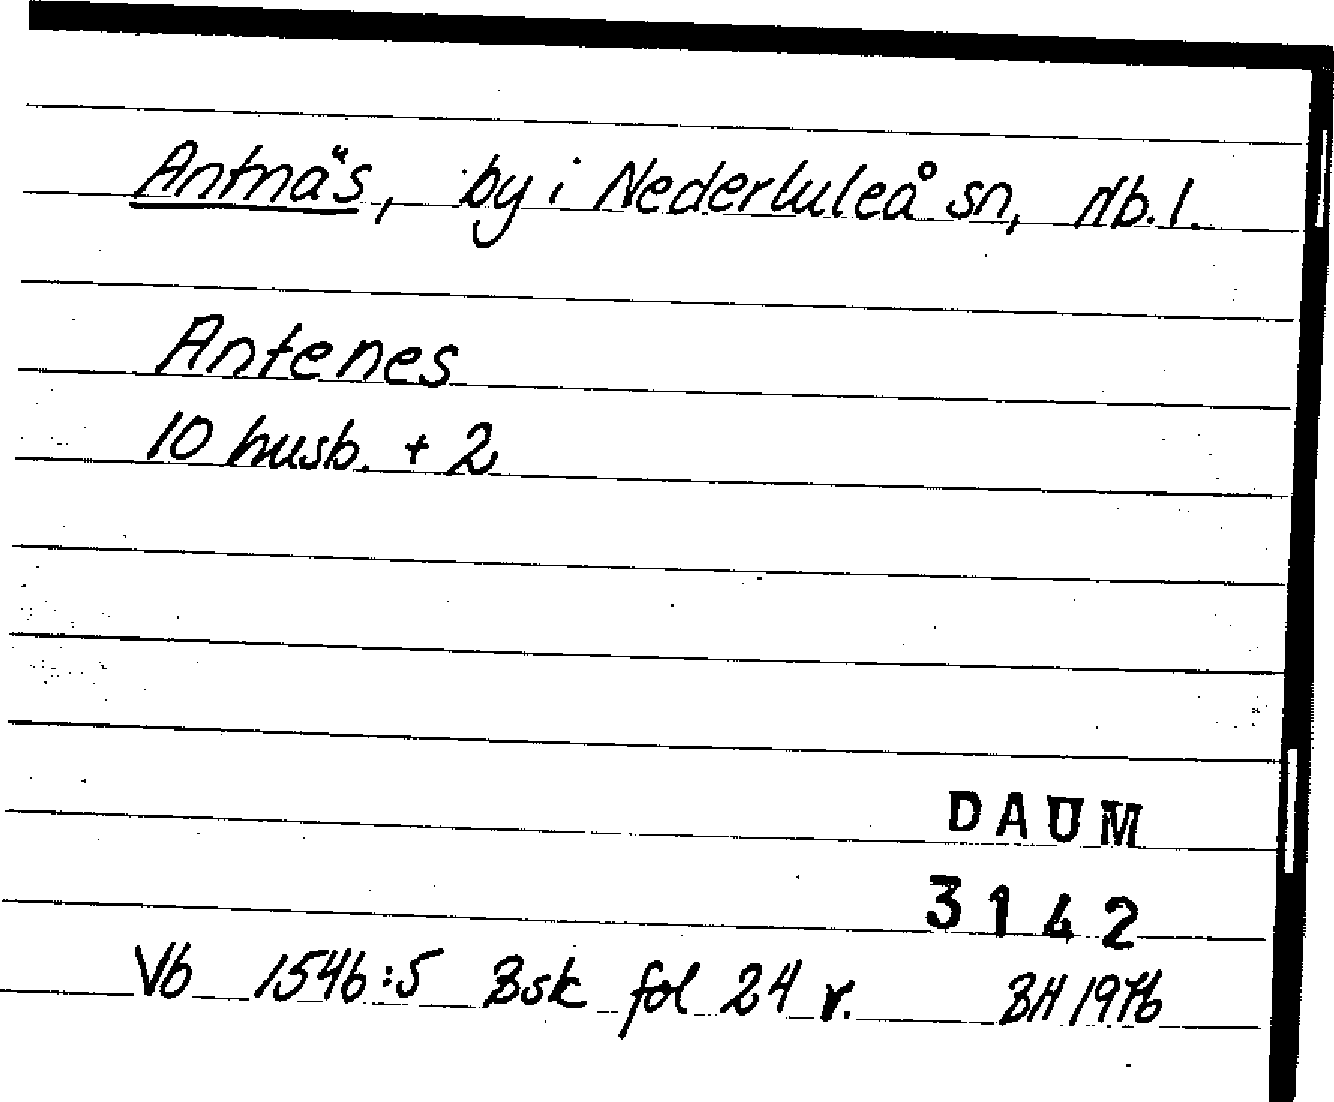 Antnäs, by i Nederluleå sn, Nb. l.
Antenes
10 husb. + 2
DAUM
3142
Vb 1546:5 Bsk fol 24 r. BH 1976